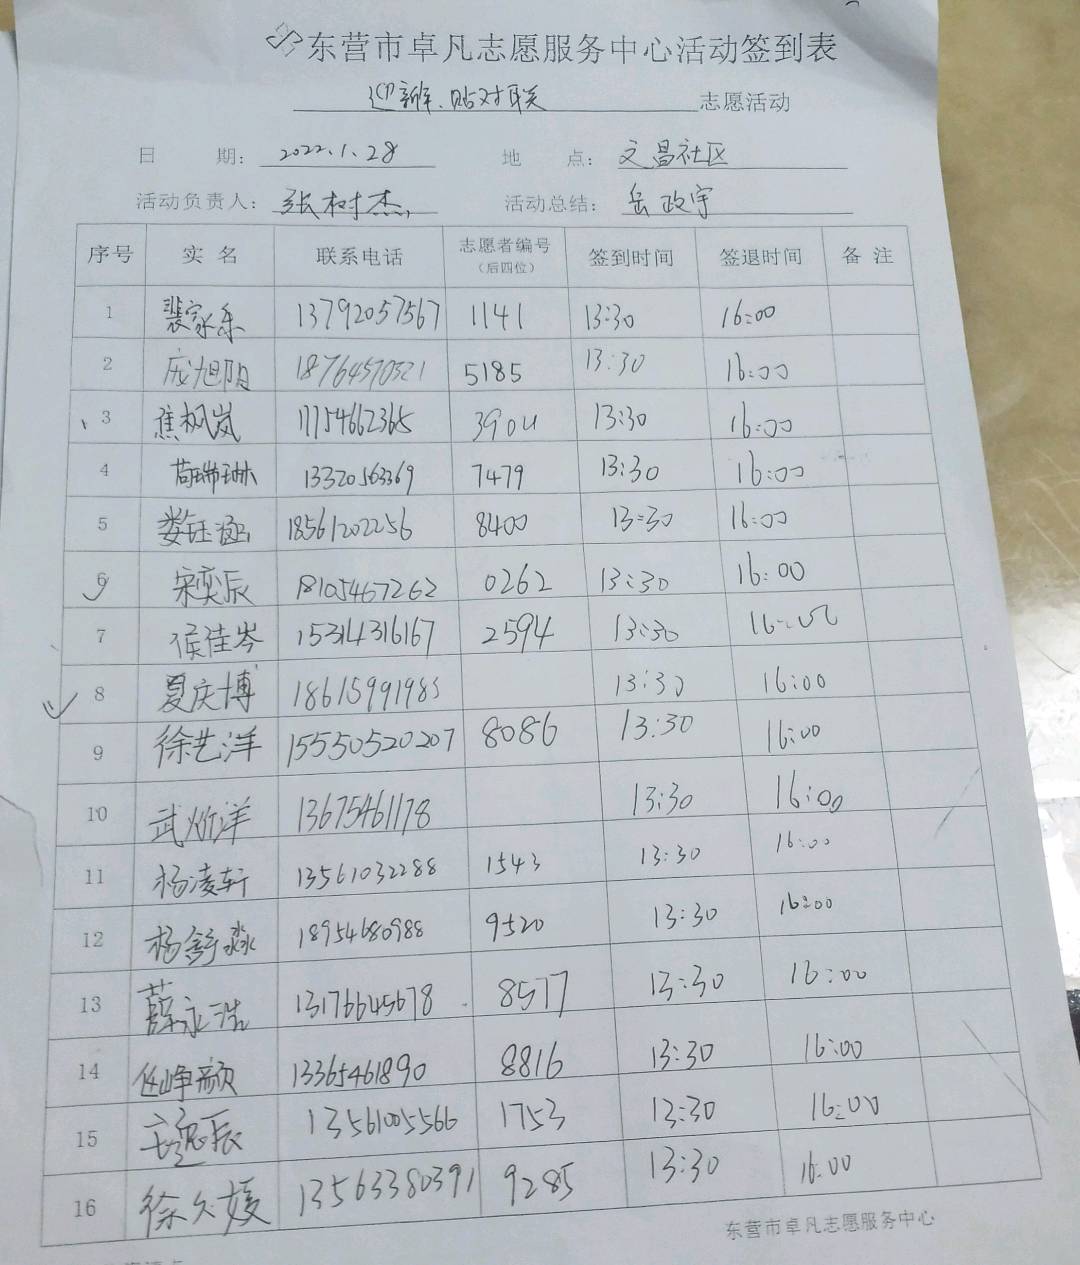 东营市卓凡志愿服务中心活动签到表
迎新年.贴对联 志愿活动
日 期: 2022.1.28 地 点: 文昌社区
活动负责人: 张树杰 活动总结: 岳政宇
序号 实名 联系电话 志愿者编号（后四位） 签到时间 签退时间 备注
1 裴家乐 13792057567 1141 13:30 16:00
2 庞旭阳 18764570321 5185 13:30 16:00
3 焦枫岚 17154662365 3904 13:30 16:00
4 荀瑞琳 13320563369 7479 13:30 16:00
5 娄钰涵 18561202256 8400 13:30 16:00
6 宋奕辰 18105467262 0262 13:30 16:00
7 侯佳岑 15314316167 2594 13:30 16:00
8 夏庆博 18615991983 13:30 16:00
9 徐艺洋 15550520207 8086 13:30 16:00
10 武炘洋 13675461178 13:30 16:00
11 杨凌轩 13561032288 1543 13:30 16:00
12 杨舒淼 18954680988 9520 13:30 16:00
13 薛永浩 13176645678 8577 13:30 16:00
14 任峥颜 13365461890 8816 13:30 16:00
15 逸辰 13561005566 1753 13:30 16:00
16 徐久媛 13563380391 9285 13:30 16:00
东营市卓凡志愿服务中心